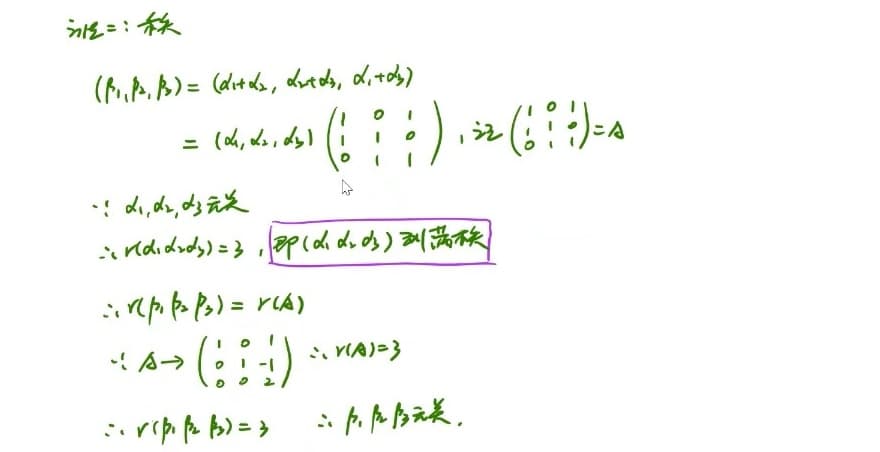 证法二:秩
(β₁,β₂,β₃) = (α₁+α₂, α₂+α₃, α₁+α₃)
= (α₁,α₂,α₃) (1 0 1; 1 1 0; 0 1 1), 记 (1 0 1; 1 1 0; 0 1 1) = A
∵ α₁,α₂,α₃无关
∴ r(α₁α₂α₃) = 3, 即(α₁ α₂ α₃)列满秩
∴ r(β₁ β₂ β₃) = r(A)
∵ A → (1 0 1; 0 1 -1; 0 0 2) ∴ r(A)=3
∴ r(β₁ β₂ β₃) = 3 ∴ β₁ β₂ β₃无关.